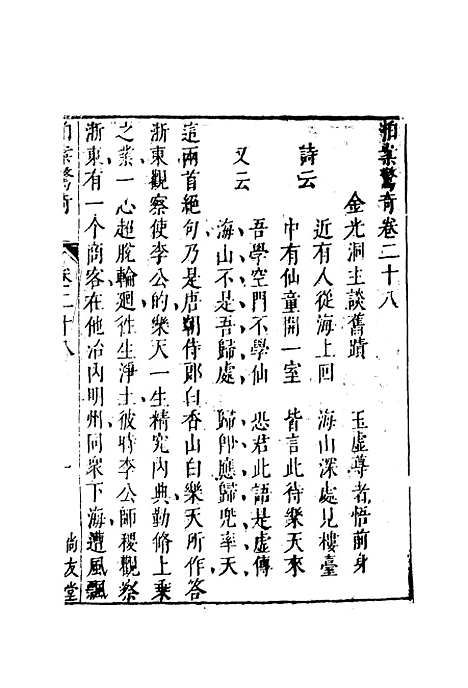 拍案驚奇卷二十八
金光洞主談舊蹟　玉虛尊者悟前身
詩云
近有人從海上回　海山深處見樓臺
中有仙童開一室　皆言此待樂天來
又云
吾學空門不學仙　恐君此語是虛傳
海山不是吾歸處　歸卽應歸兜率天
這兩首絕句乃是唐朝侍郎白香山白樂天所作答
浙東觀察使李公的樂天一生精究內典勤脩上乗
之業一心超脫輪廻徃生淨土彼時李公師稷觀察
浙東有一个商客在他治內明州同衆下海遭風飄
拍案驚奇　卷二十八　一　尚友堂